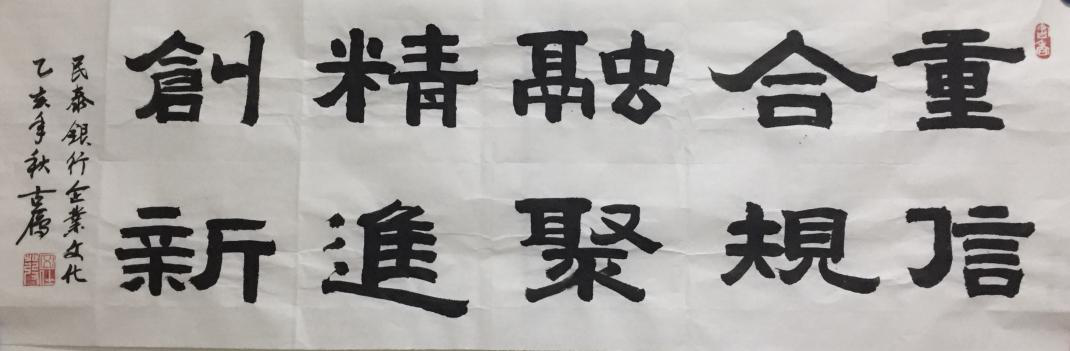 重信
合規
融聚
精進
創新
民泰銀行企業文化
乙亥年秋古馬